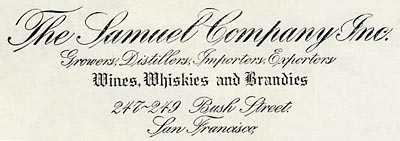 The Samuel Company Inc.
Growers, Distillers, Importers, Exporters
Wines, Whiskies and Brandies
247-249 Bush Street.
San Francisco,